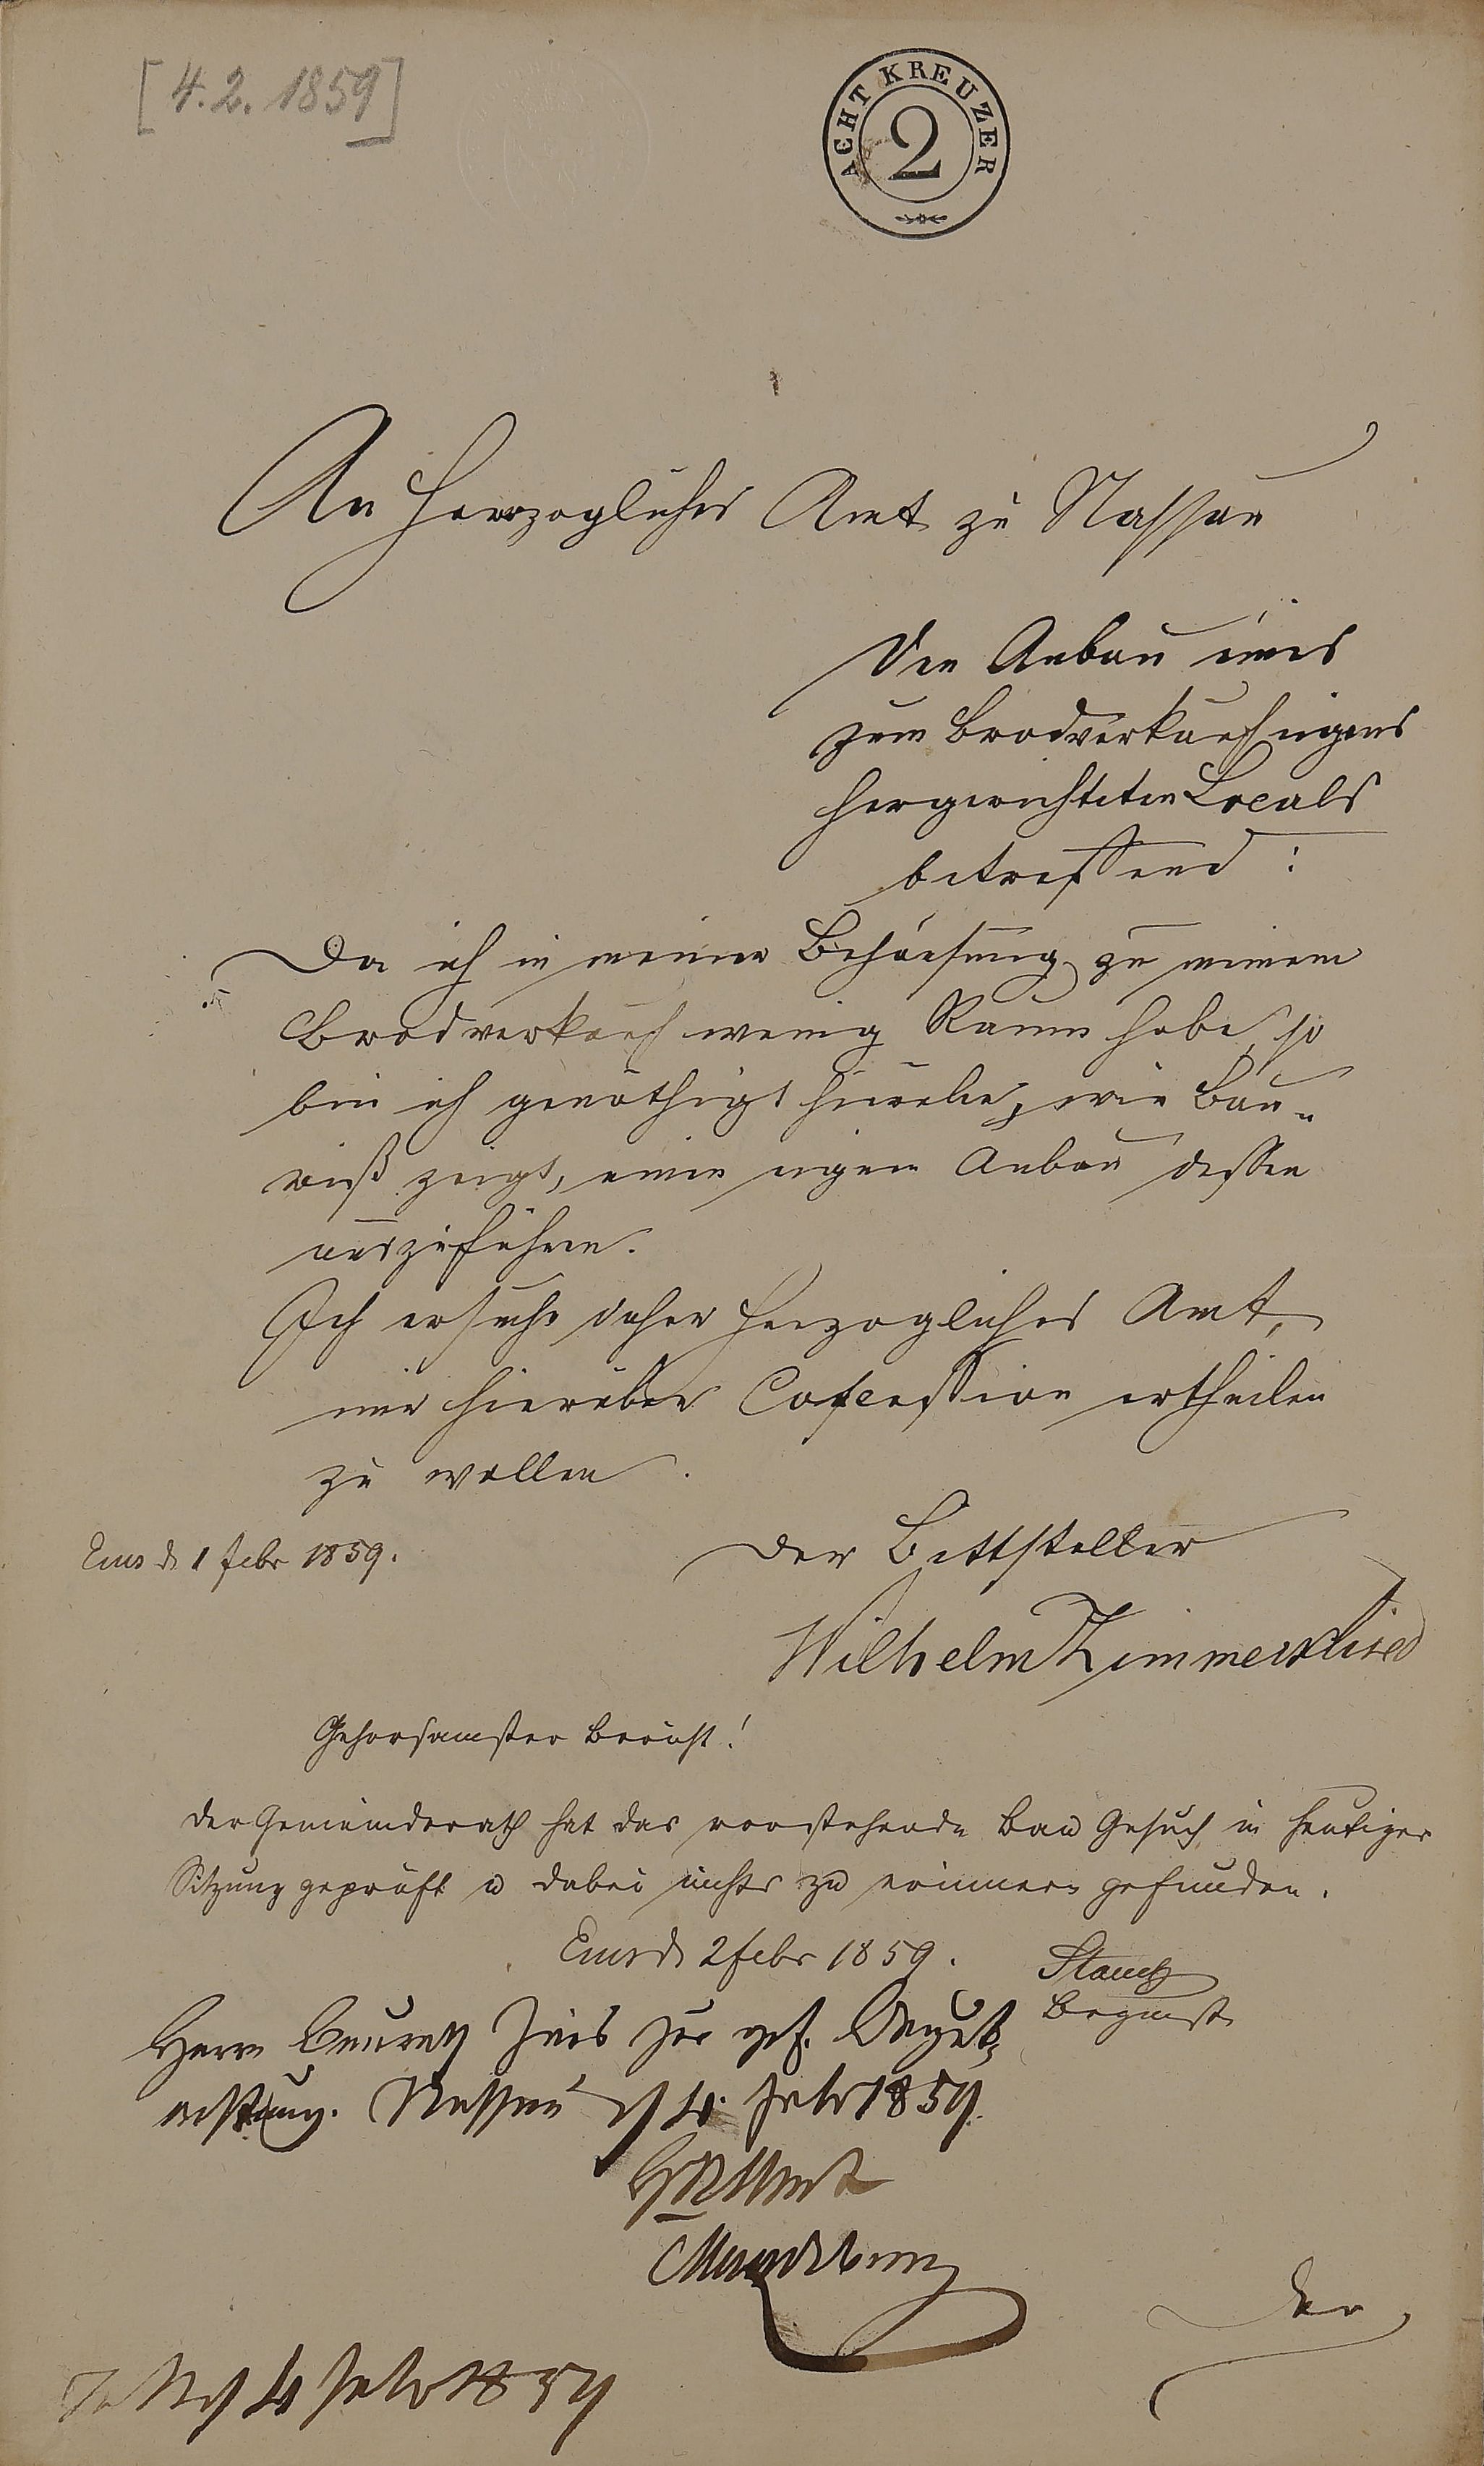 [4.2.1859]
ACHT KREUZER
2
An Herzogliches Amt zu Nassau
Den Anbau eines
zum Brodverkauf eigens
hergerichteten Locals
betreffend:
Da ich in meiner Behausung zu meinem
Brodverkauf wenig Raum habe, so
bin ich genöthigt hieneben, wie Bau-
riß zeigt, einen eigen Anbau dessen
auszuführen.
Ich ersuche daher Herzogliches Amt,
mir hierüber Concession ertheilen
zu wollen.
Ems d. 1 Febr 1859.
Der Bittsteller
Wilhelm Zimmerschied
Gehorsamster Bericht!
Der Gemeinderath hat das vorstehende Bau Gesuch in heutiger
Sitzung geprüft u dabei nichts zu erinnern gefunden.
Ems d. 2 Febr 1859.
Herrn Baurath zur gef.
Nassau 4. Febr 1859.
Der
4 Febr 1859